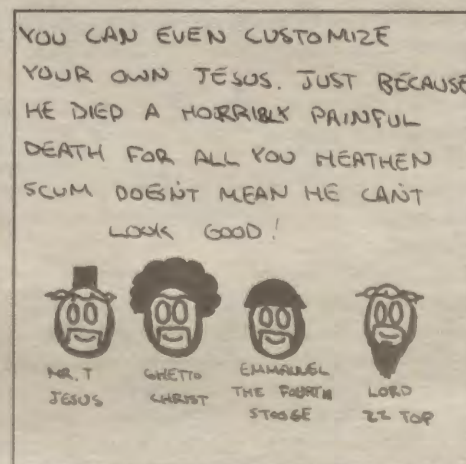 YOU CAN EVEN CUSTOMIZE
YOUR OWN JESUS. JUST BECAUSE
HE DIED A HORRIBLY PAINFUL
DEATH FOR ALL YOU HEATHEN
SCUM DOESN'T MEAN HE CAN'T
LOOK GOOD!
MR. T
JESUS
GHETTO
CHRIST
EMMANUEL
THE FOURTH
STOOGE
LORD
ZZ TOP